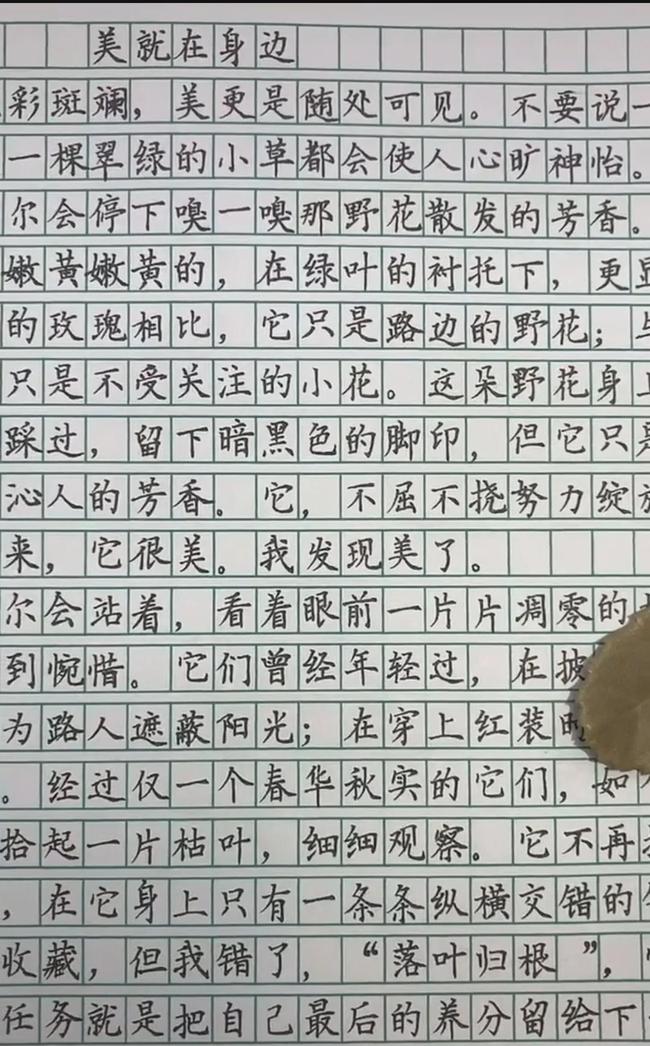 美就在身边
彩斑斓，美更是随处可见。不要说一
一棵翠绿的小草都会使人心旷神怡。
尔会停下嗅一嗅那野花散发的芳香。
嫩黄嫩黄的，在绿叶的衬托下，更显
的玫瑰相比，它只是路边的野花；与
只是不受关注的小花。这朵野花身上
踩过，留下暗黑色的脚印，但它只是
沁人的芳香。它，不屈不挠努力绽放
来，它很美。我发现美了。
尔会站着，看着眼前一片片凋零的
到惋惜。它们曾经年轻过，在披
为路人遮蔽阳光；在穿上红装时
。经过仅一个春华秋实的它们，如
拾起一片枯叶，细细观察。它不再
，在它身上只有一条条纵横交错的
收藏，但我错了，“落叶归根”，
任务就是把自己最后的养分留给下